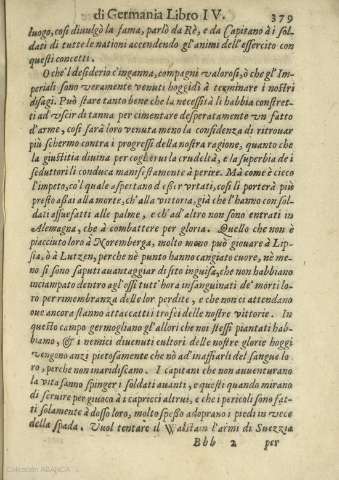 di Germania Libro IV. 379
luogo, così divulgò la fama, parlò da Rè, e da Capitano à i sol-
dati di tutte le nationi accendendo gl'animi dell'essercito con
questi concetti.
O che'l desiderio c'inganna, compagni valorosi, ò che gl'Im-
periali sono veramente venuti hoggidì à terminare i nostri
disagi. Può stare tanto bene che la necessità li habbia constret-
ti ad uscir di tanna per cimentare desperatamente un fatto
d'arme, così sarà loro venuta meno la confidenza di ritrovar
più schermo contra i progressi della nostra ragione, quanto che
la giustitia divina per coglierui la crudeltà, e la superbia de i
seduttori li conduca manifestamente à perire. Mà come è cieco
l'impeto, co'l quale aspettano d'esser urtati, così li porterà più
presto assai alla morte, ch'alla vittoria, già che l'hanno con sol-
dati assuefatti alle palme, e ch'ad altro non sono entrati in
Alemagna, che à combattere per gloria. Quello che non è
piacciuto loro à Noremberga, molto meno può giovare à Lip-
sia, ò à Lutzen, perche nè punto hanno cangiato cuore, nè me-
no si sono saputi avantaggiar di sito inguisa, che non habbiano
inciampato dentro agl'ossi tutt'hora insanguinati de' morti lo-
ro per rimembranza delle lor perdite, e che non ci attendano
ove ancora stanno attaccati i trofei delle nostre vittorie. In
questo campo germogliano gl'allori che noi stessi piantati hab-
biamo, & i nemici divenuti cultori delle nostre glorie hoggi
vengono anzi pietosamente che nò ad inaffiarli del sangue lo
ro, perche non inaridiscano. I capitani che avventurano
la vita sanno spinger i soldati avanti, e questi quando mirano
di servire per giuoco à i capricci altrui, e che i pericoli son fat-
ti solamente à dosso loro, molto spesso adoprano i piedi in vece
della spada. Vuol tentare il Walstain l'armi di Suezzia
Bbb 2 per
Colección ABANCA